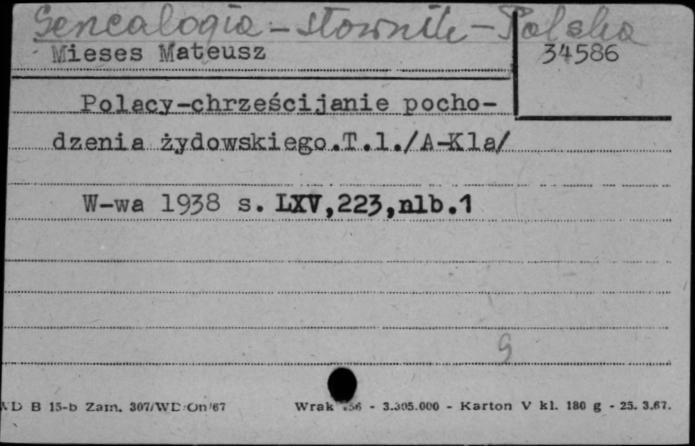 Genealogia – słownik – Polska
Mieses Mateusz
34586
Polacy-chrześcijanie pocho-
dzenia żydowskiego.T.1./A-Kla/
W-wa 1938 s. LXV,223,nlb.1
9
B 15-b Zam. 307/WD/On/67 Wrak - 3.305.000 - Karton V kl. 180 g - 25. 3.67.